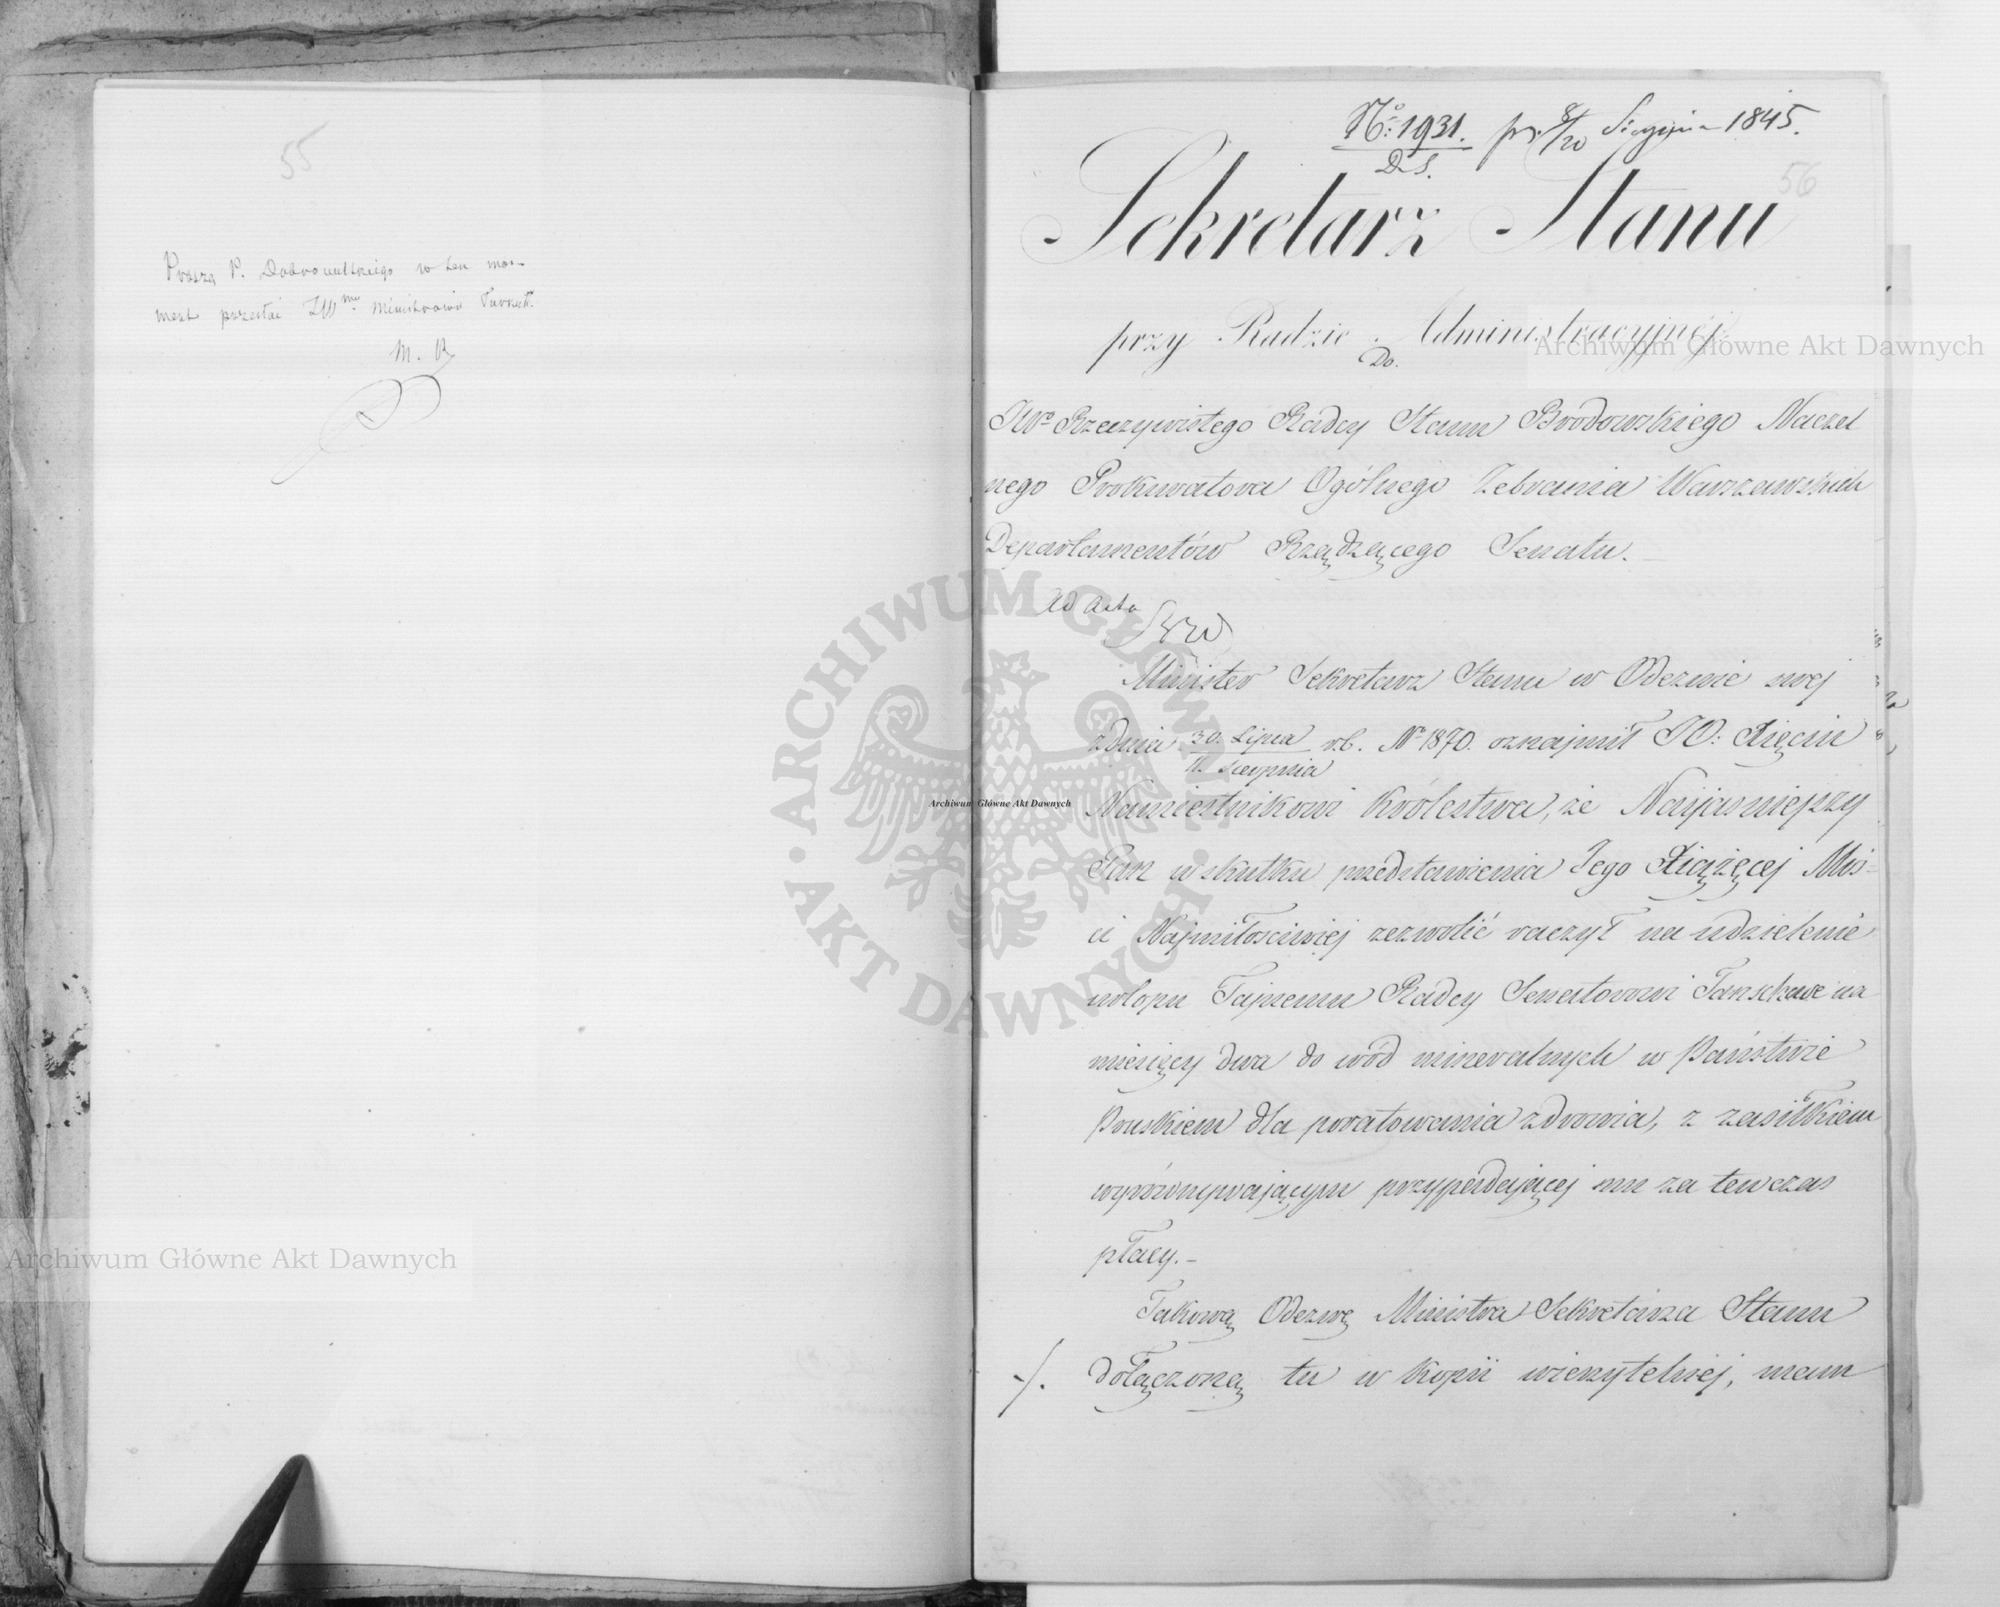 55
Proszę P. Dobrowolskiego w ten mo-
ment przesłać JW.mu Ministrowi
M. R
No: 1931. pr. 8/20 Sierpnia 1845.
D. S.
56
Sekretarz Stanu
przy Radzie Administracyjnéj
Do.
JWo Rzeczywistego Radcy Stanu Brodowskiego Naczel
nego Prokuratora Ogólnego Zebrania Warszawskich
Departamentów Rządzącego Senatu.
Ad acta
Minister Sekretarz Stanu w Odezwie swej
z dnia 30. Lipca r.b. No 1870. oznajmił JO: Xięciu
11. Sierpnia
Namiestnikowi Królestwa, że Najjaśniejszy
Pan w skutku przedstawienia Jego Xiążęcej Moś-
ci Najmiłościwiej zezwolić raczył na udzielenie
urlopu Tajnemu Radcy Senatorowi na
miesięcy dwa do wód mineralnych w Państwie
Pruskiem dla poratowania zdrowia, z zasiłkiem
wyrównywającym przypadającej mu za ten czas
płacy.-
Takową Odezwę Ministra Sekretarza Stanu
-/. dołączoną tu w kopii wierzytelnéj, mam
Archiwum Główne Akt Dawnych
Archiwum Główne Akt Dawnych
Archiwum Główne Akt Dawnych
ARCHIWUM GŁÓWNE · AKT DAWNYCH ·